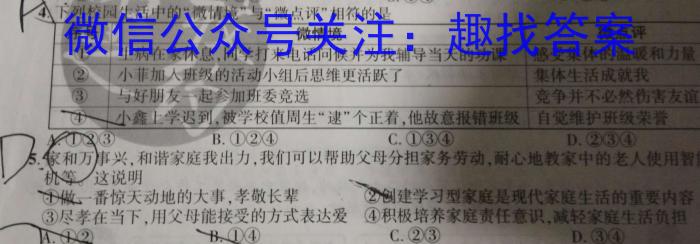 4.下列校园生活中的“微情境”与“微点评”相符的是
微信公众号关注：趣找答案
微情境
点评
病在家休息,同学打来电话问候并为我辅导当天的功课 感受集体的温暖和力量
② 小菲加入班级的活动小组后思维更活跃了 集体生活成就我
③ 与好朋友一起参加班委竞选 竞争并不必然伤害友谊
④ 小鑫上学迟到,被学校值周生“逮”个正着,他故意报错班级 自觉维护班级荣誉
A.①②③ B.①②④ C.①③④ D.②③④
5.家和万事兴,和谐家庭我出力,我们可以帮助父母分担家务劳动,耐心地教家中的老人使用智
机等。这说明
①做一番惊天动地的大事,孝敬长辈 ②创建学习型家庭是现代家庭生活的重要内容
③尽孝在当下,用父母能接受的方式表达爱 ④积极培养家庭责任意识,减轻家庭生活负担
A.①② B.①④ C.②③ D.③④